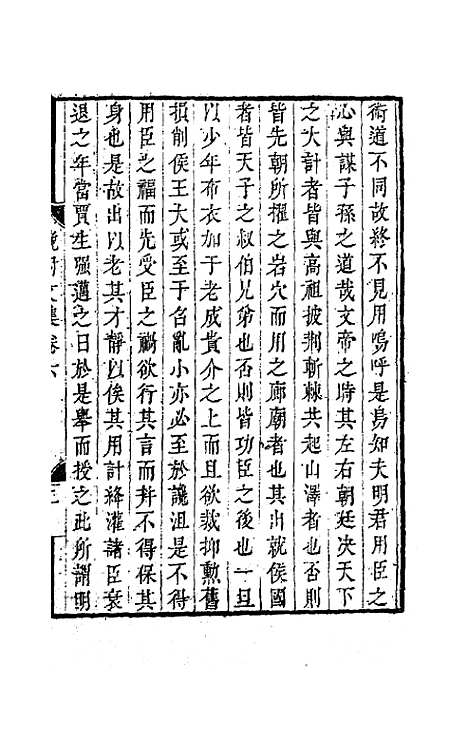 術道不同故終不見用嗚呼是烏知夫明君用臣之
心與謀子孫之道哉文帝之時其左右朝廷决天下
之大計者皆與高祖披荆斬棘共起山澤者也否則
皆先朝所擢之岩穴而用之廊廟者也其出就侯國
者皆天子之叔伯兄弟也否則皆功臣之後也一旦
以少年布衣加于老成貴介之上而且欲裁抑勲舊
損削侯王大或至于召亂小亦必至於讒沮是不得
用臣之福而先受臣之禍欲行其言而并不得保其
身也是故出以老其才靜以俟其用計絳灌諸臣衰
退之年當賈生强邁之日於是舉而授之此所謂明
文集卷六